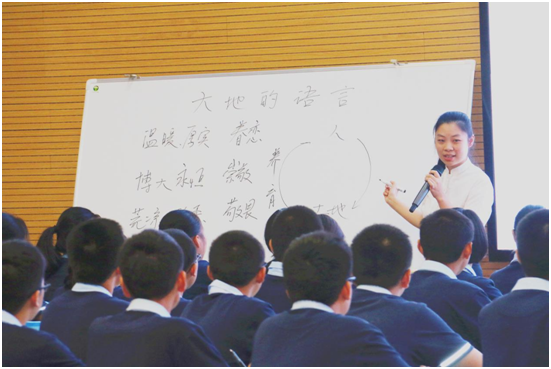 大地的语言
温暖 厚实 眷恋
人
博大 永恒 崇敬
养育
荒凉 敬畏
大地